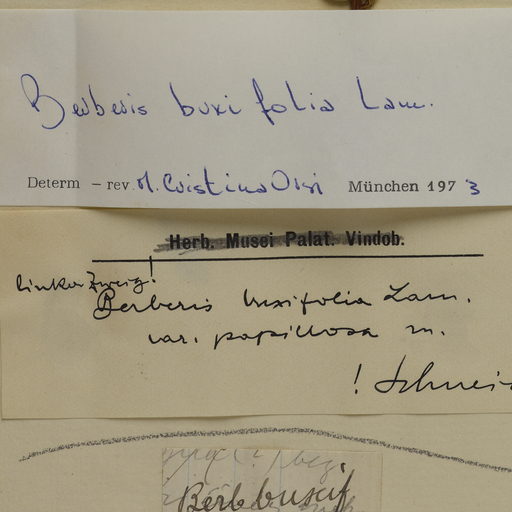 Berberis buxifolia Lam.
Determ – rev. M. Cristina Orsi München 1973
Herb. Musei Palat. Vindob.
linker Zweig!
Berberis buxifolia Lam.
var. papillosa m.
!
Berb buxif